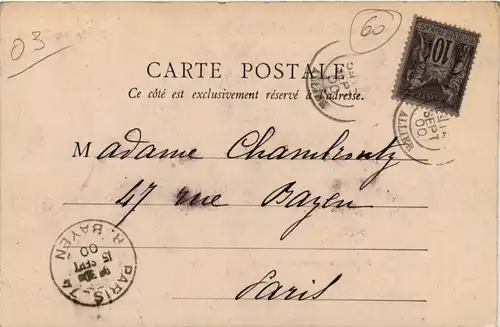 03
60
10
CARTE POSTALE
Ce côté est exclusivement réservé à l'adresse.
Madame
47 rue Bayen
Paris
PARIS 74
R. BAYEN
15
SEPT
00
SEPT
00